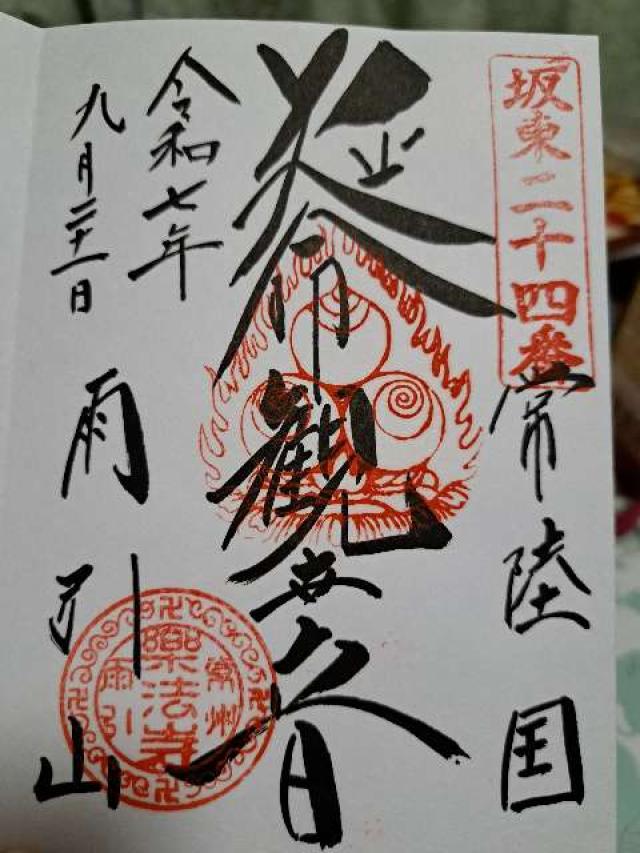 坂東二十四番
常陸国
延命観世音
令和七年
九月二十一日
雨引山
常州
樂法寺
雨引